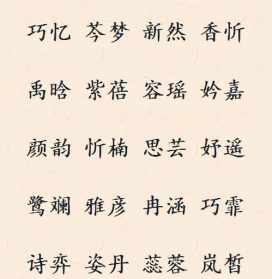 巧忆 芩梦 新然 香忻
禹晗 紫蓓 容瑶 妗嘉
颜韵 忻楠 思芸 妤遥
鹭斓 雅彦 冉涵 巧霏
诗弈 姿丹 蕊蓉 岚皙